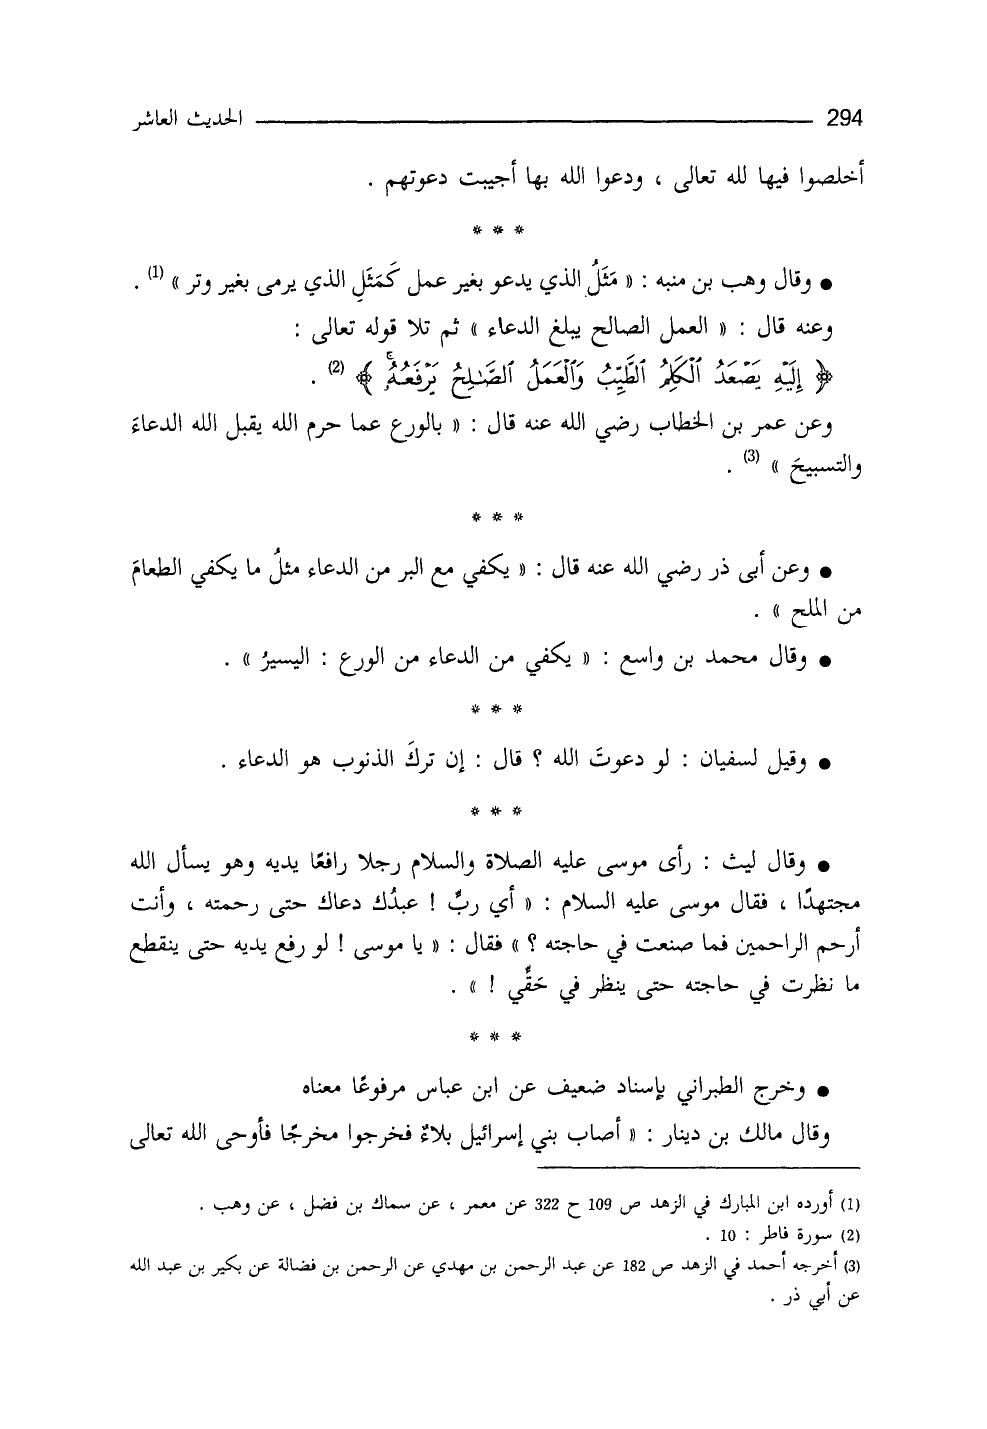 294 الحديث العاشر
أخلصوا فيها لله تعالى ، ودعوا الله بها أجيبت دعوتهم .
* * *
● وقال وهب بن منبه : « مَثَلُ الذي يدعو بغير عمل كَمَثَلِ الذي يرمى بغير وتر » (1) .
وعنه قال : « العمل الصالح يبلغ الدعاء » ثم تلا قوله تعالى :
﴿ إِلَيْهِ يَصْعَدُ ٱلْكَلِمُ ٱلطَّيِّبُ وَٱلْعَمَلُ ٱلصَّٰلِحُ يَرْفَعُهُۥۚ ﴾ (2) .
وعن عمر بن الخطاب رضي الله عنه قال : « بالورع عما حرم الله يقبل الله الدعاءَ
والتسبيحَ » (3) .
* * *
● وعن أبى ذر رضي الله عنه قال : « يكفي مع البر من الدعاء مثلُ ما يكفي الطعامَ
من الملح » .
● وقال محمد بن واسع : « يكفي من الدعاء من الورع : اليسيرُ » .
* * *
● وقيل لسفيان : لو دعوتَ الله ؟ قال : إن تركَ الذنوب هو الدعاء .
* * *
● وقال ليث : رأى موسى عليه الصلاة والسلام رجلا رافعًا يديه وهو يسأل الله
مجتهدًا ، فقال موسى عليه السلام : « أي ربِّ ! عبدُك دعاك حتى رحمته ، وأنت
أرحم الراحمين فما صنعت في حاجته ؟ » فقال : « يا موسى ! لو رفع يديه حتى ينقطع
ما نظرت في حاجته حتى ينظر في حَقِّي ! » .
* * *
● وخرج الطبراني بإسناد ضعيف عن ابن عباس مرفوعًا معناه
وقال مالك بن دينار : « أصاب بني إسرائيل بلاءٌ فخرجوا مخرجًا فأوحى الله تعالى
(1) أورده ابن المبارك في الزهد ص 109 ح 322 عن معمر ، عن سماك بن فضل ، عن وهب .
(2) سورة فاطر : 10 .
(3) أخرجه أحمد في الزهد ص 182 عن عبد الرحمن بن مهدي عن الرحمن بن فضالة عن بكير بن عبد الله
عن أبي ذر .